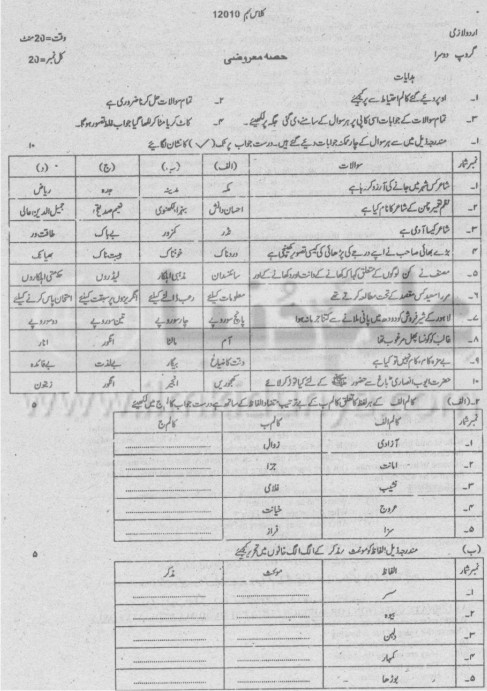 کلاس نہم 12010
اردو لازمی
وقت=20 منٹ
گروپ دوسرا
حصہ معروضی
کل نمبر=20
ہدایات
۱۔ اوپر دیئے گئے کالم احتیاط سے پُر کیجئے
۲۔ تمام سوالات حل کرنا ضروری ہے
۳۔ تمام سوالات کے جوابات اسی کاپی پر ہر سوال کے سامنے دی گئی جگہ پر لکھیئے۔
۴۔ کاٹ کر یا مٹا کر لکھا گیا جواب غلط تصور ہوگا۔
۱۔ مندرجہ ذیل میں سے ہر سوال کے چار ممکنہ جوابات دیئے گئے ہیں۔ درست جواب پر ٹک (✓) کا نشان لگائیے ۱۰
نمبر شمار سوالات (الف) (ب) (ج) (د)
۱۔ شاعر کس شہر میں جانے کی آرزو کر رہا ہے مکہ مدینہ جدہ ریاض
۲۔ نظم تعمیر چمن کے شاعر کا نام کیا ہے احسان دانش بہزاد لکھنوی نعیم صدیقی جمیل الدین عالی
۳۔ شاعر کیسا آدمی ہے نڈر کمزور بےباک طاقت ور
۴۔ بڑے بھائی صاحب نے اپنے درجے کی پڑھائی کی کیسی تصویر کھینچی ہے دردناک خوفناک ہیبت ناک بھیانک
۵۔ مصنف نے کن لوگوں کے متعلق کہا کہ کھانے کے دانت اور دکھانے کے اور سائنسدان مذہبی اہلکار لیڈروں حکومتی اہلکاروں
۶۔ سرسید کس مقصد کے تحت مطالعہ کرتے تھے معلومات کیلئے رعب ڈالنے کیلئے انگریزوں پر سبقت کیلئے امتحان پاس کرنے کیلئے
۷۔ لاہور کے شیر فروش کو دودھ میں پانی ملانے سے کتنا جرمانہ ہوا پانچ سو روپے چار سو روپے تین سو روپے دو سو روپے
۸۔ غالب کو کونسا پھل مرغوب تھا آم مالٹا انگور انار
۹۔ بے مزہ کام، کام نہیں تو کیا ہے وقت کا ضیاع بیکار بے لذت بے فائدہ
۱۰۔ حضرت ایوب انصاری باغ سے حضور ﷺ کے لئے کیا توڑ کر لائے کھجوریں انجیر انگور زیتون
۲۔(الف) کالم الف کے ہر لفظ کا تعلق کالم ب کے بے ترتیب متضاد الفاظ کے ساتھ ہے درست جواب کالم ج میں لکھیئے ۵
نمبر شمار کالم الف کالم ب کالم ج
۱۔ آزادی زوال
۲۔ امانت جزا
۳۔ نشیب غلامی
۴۔ عروج خیانت
۵۔ سزا فراز
(ب) مندرجہ ذیل الفاظ کو مونث مذکر کے الگ الگ خانوں میں تحریر کیجئے ۵
نمبر شمار الفاظ مونث مذکر
۱۔ سسر
۲۔ بیوہ
۳۔ دلہن
۴۔ کمہار
۵۔ بوڑھا